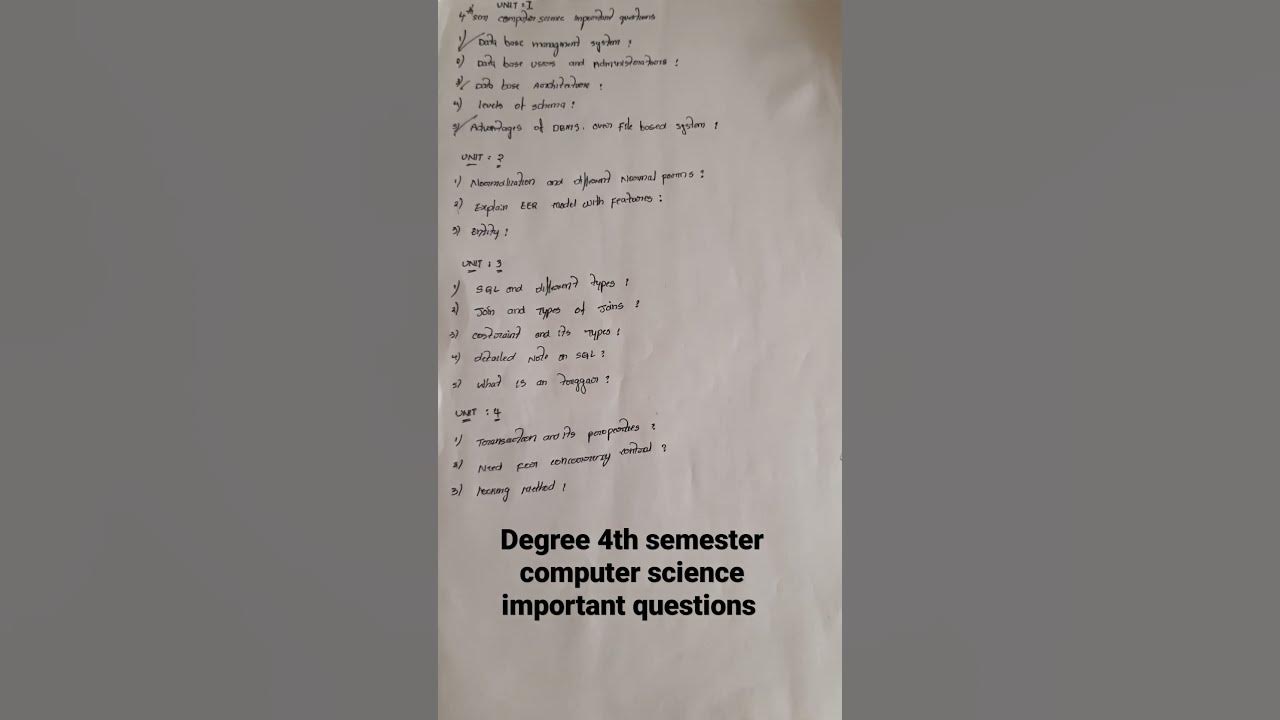 UNIT : I
4th sem computer science important questions
1) Data base managment system ?
2) Data base users and Administrators ?
3) Data base Architecture ?
4) levels of schema ?
5) Advantages of DBMS. over File based system ?
UNIT : 2
1) Normalization and different Normal forms ?
2) Explain EER model with features ?
3) Entity ?
UNIT : 3
1) SQL and different types ?
2) Join and Types of Joins ?
3) costraint and its Types ?
4) detailed Note on SQL ?
5) What is an Triggar ?
UNIT : 4
1) Transaction and its properties ?
2) Need for concurrency control ?
3) locking method ?
Degree 4th semester
computer science
important questions